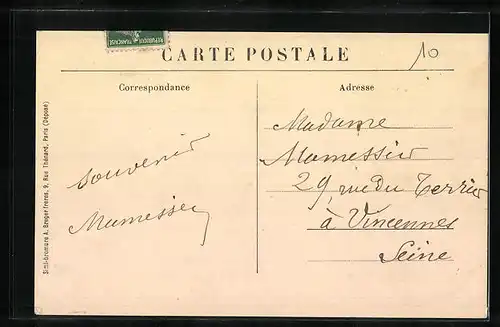 RÉPUBLIQUE FRANÇAISE
CARTE POSTALE
10
Correspondance
Adresse
Souvenir
Mamessier
Madame
Mamessier
29, rue du Terrier
à Vincennes
Seine
Simi-bromure A. Breger frères, 9, Rue Thénard, Paris (Déposé)